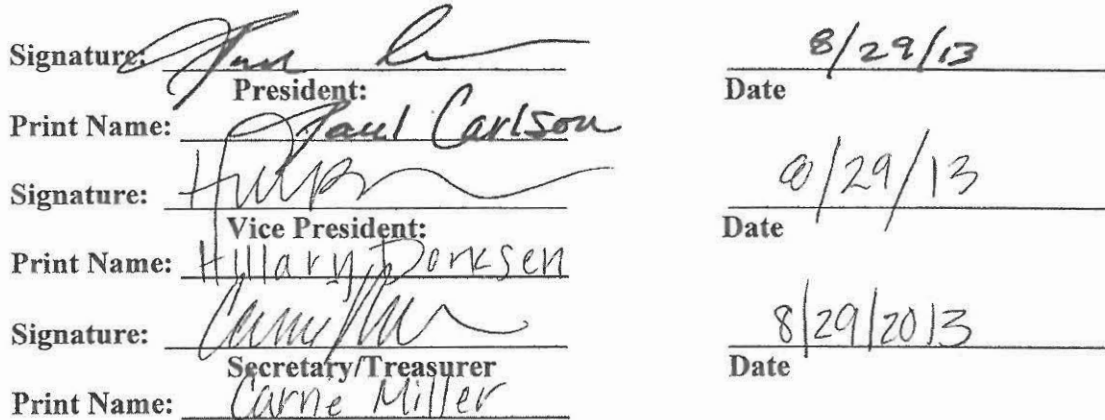 Signature: 8/29/13
President: Date
Print Name: Paul Carlson
Signature: 8/29/13
Vice President: Date
Print Name: Hillary Dorksen
Signature: 8/29/2013
Secretary/Treasurer Date
Print Name: Carrie Miller